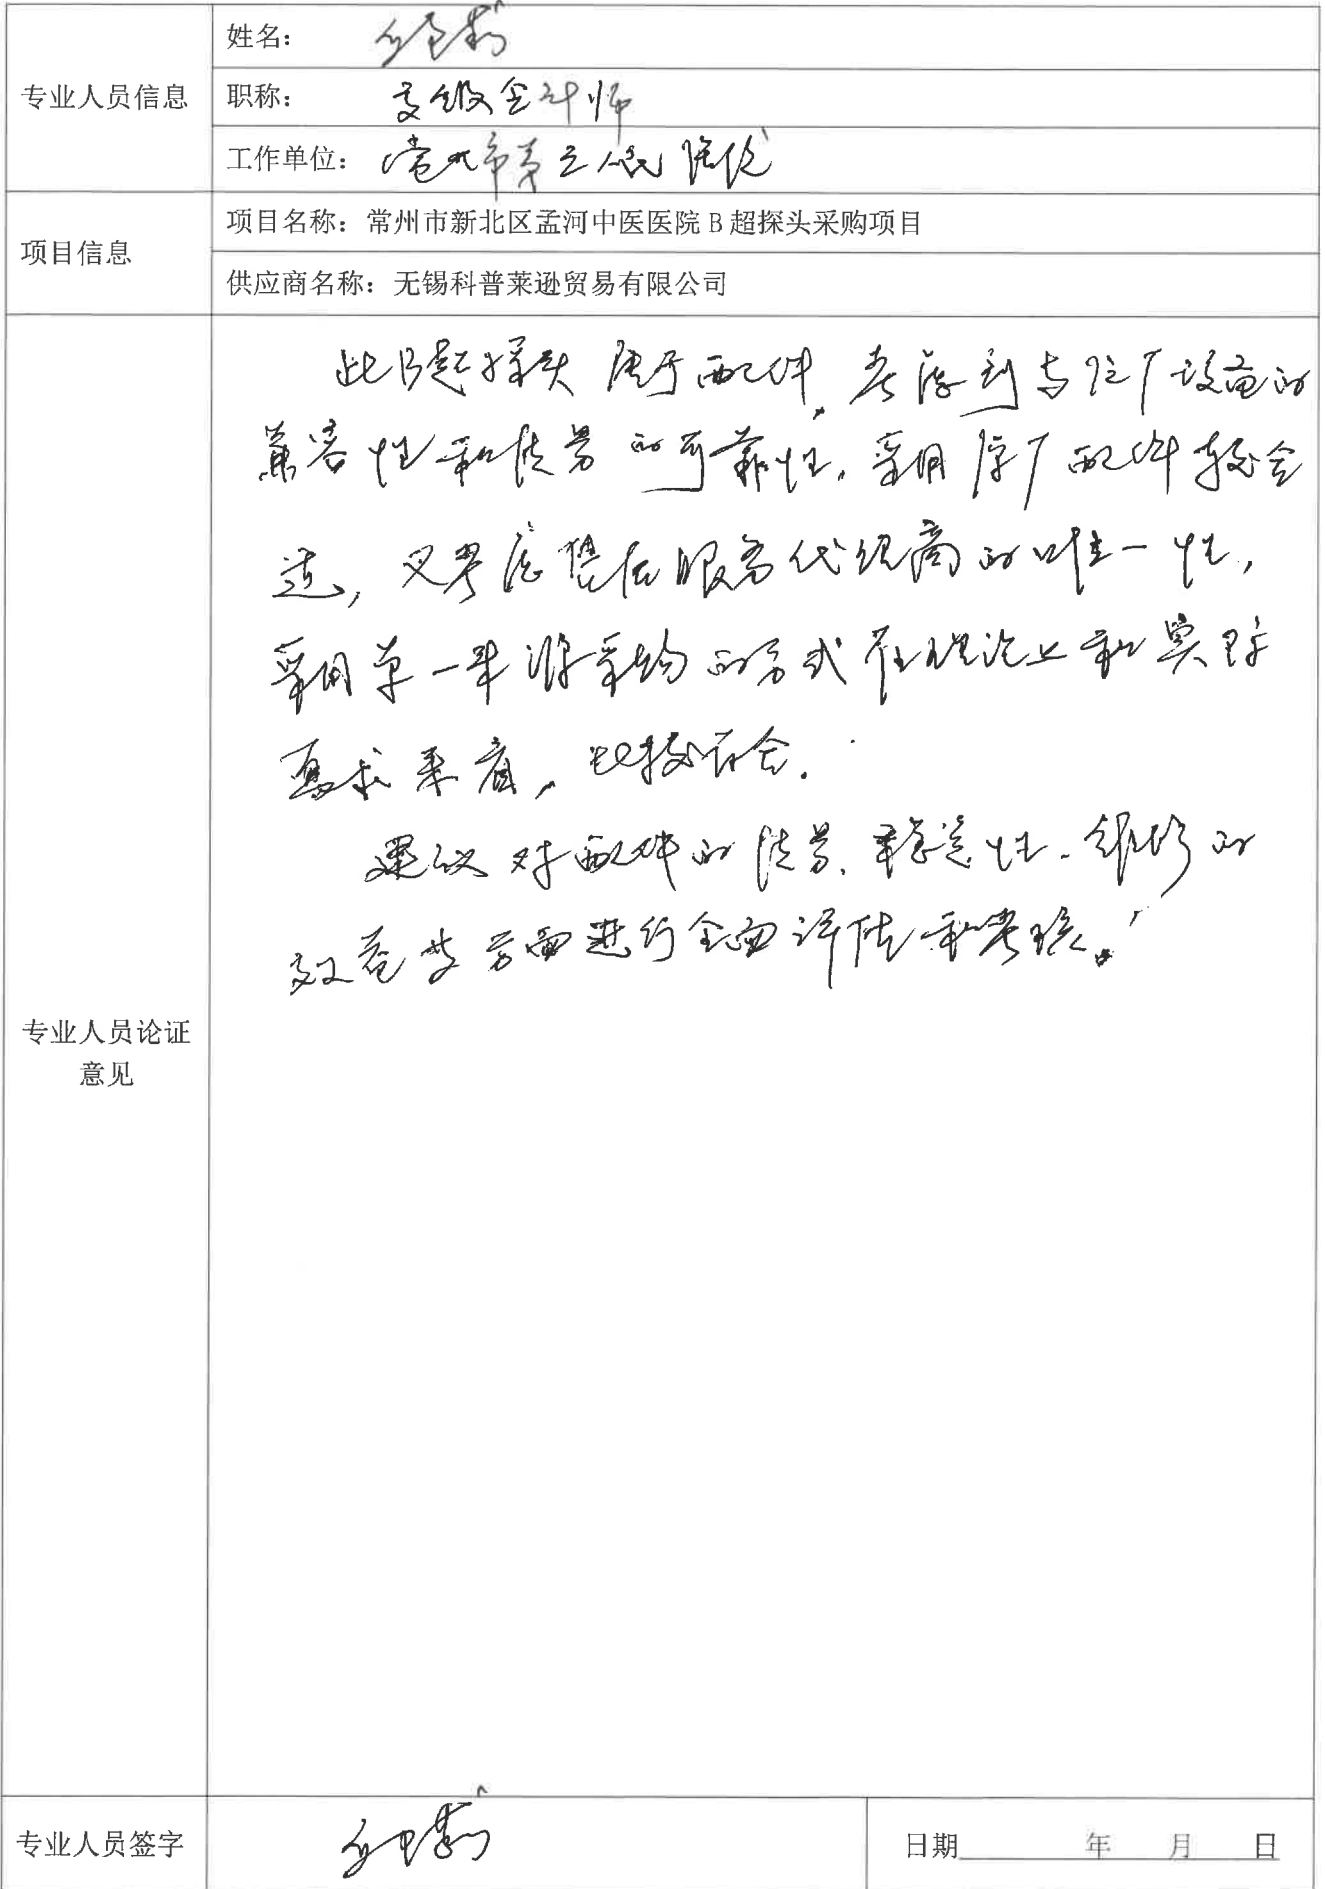 专业人员信息
姓名：
职称： 高级会计师
工作单位： 常州市第三人民医院
项目信息
项目名称：常州市新北区孟河中医医院 B 超探头采购项目
供应商名称：无锡科普莱逊贸易有限公司
专业人员论证
意见
此B超探头属于配件，考虑到与原厂设备的
兼容性和质量的可靠性，采用原厂配件较合
适，又考虑售后服务代理商的唯一性，
采用单一来源采购的方式在理论上和实际
要求来看，比较符合.
建议对配件的质量、稳定性、维修的
效益等方面进行全面评估和考核。
专业人员签字
日期 年 月 日